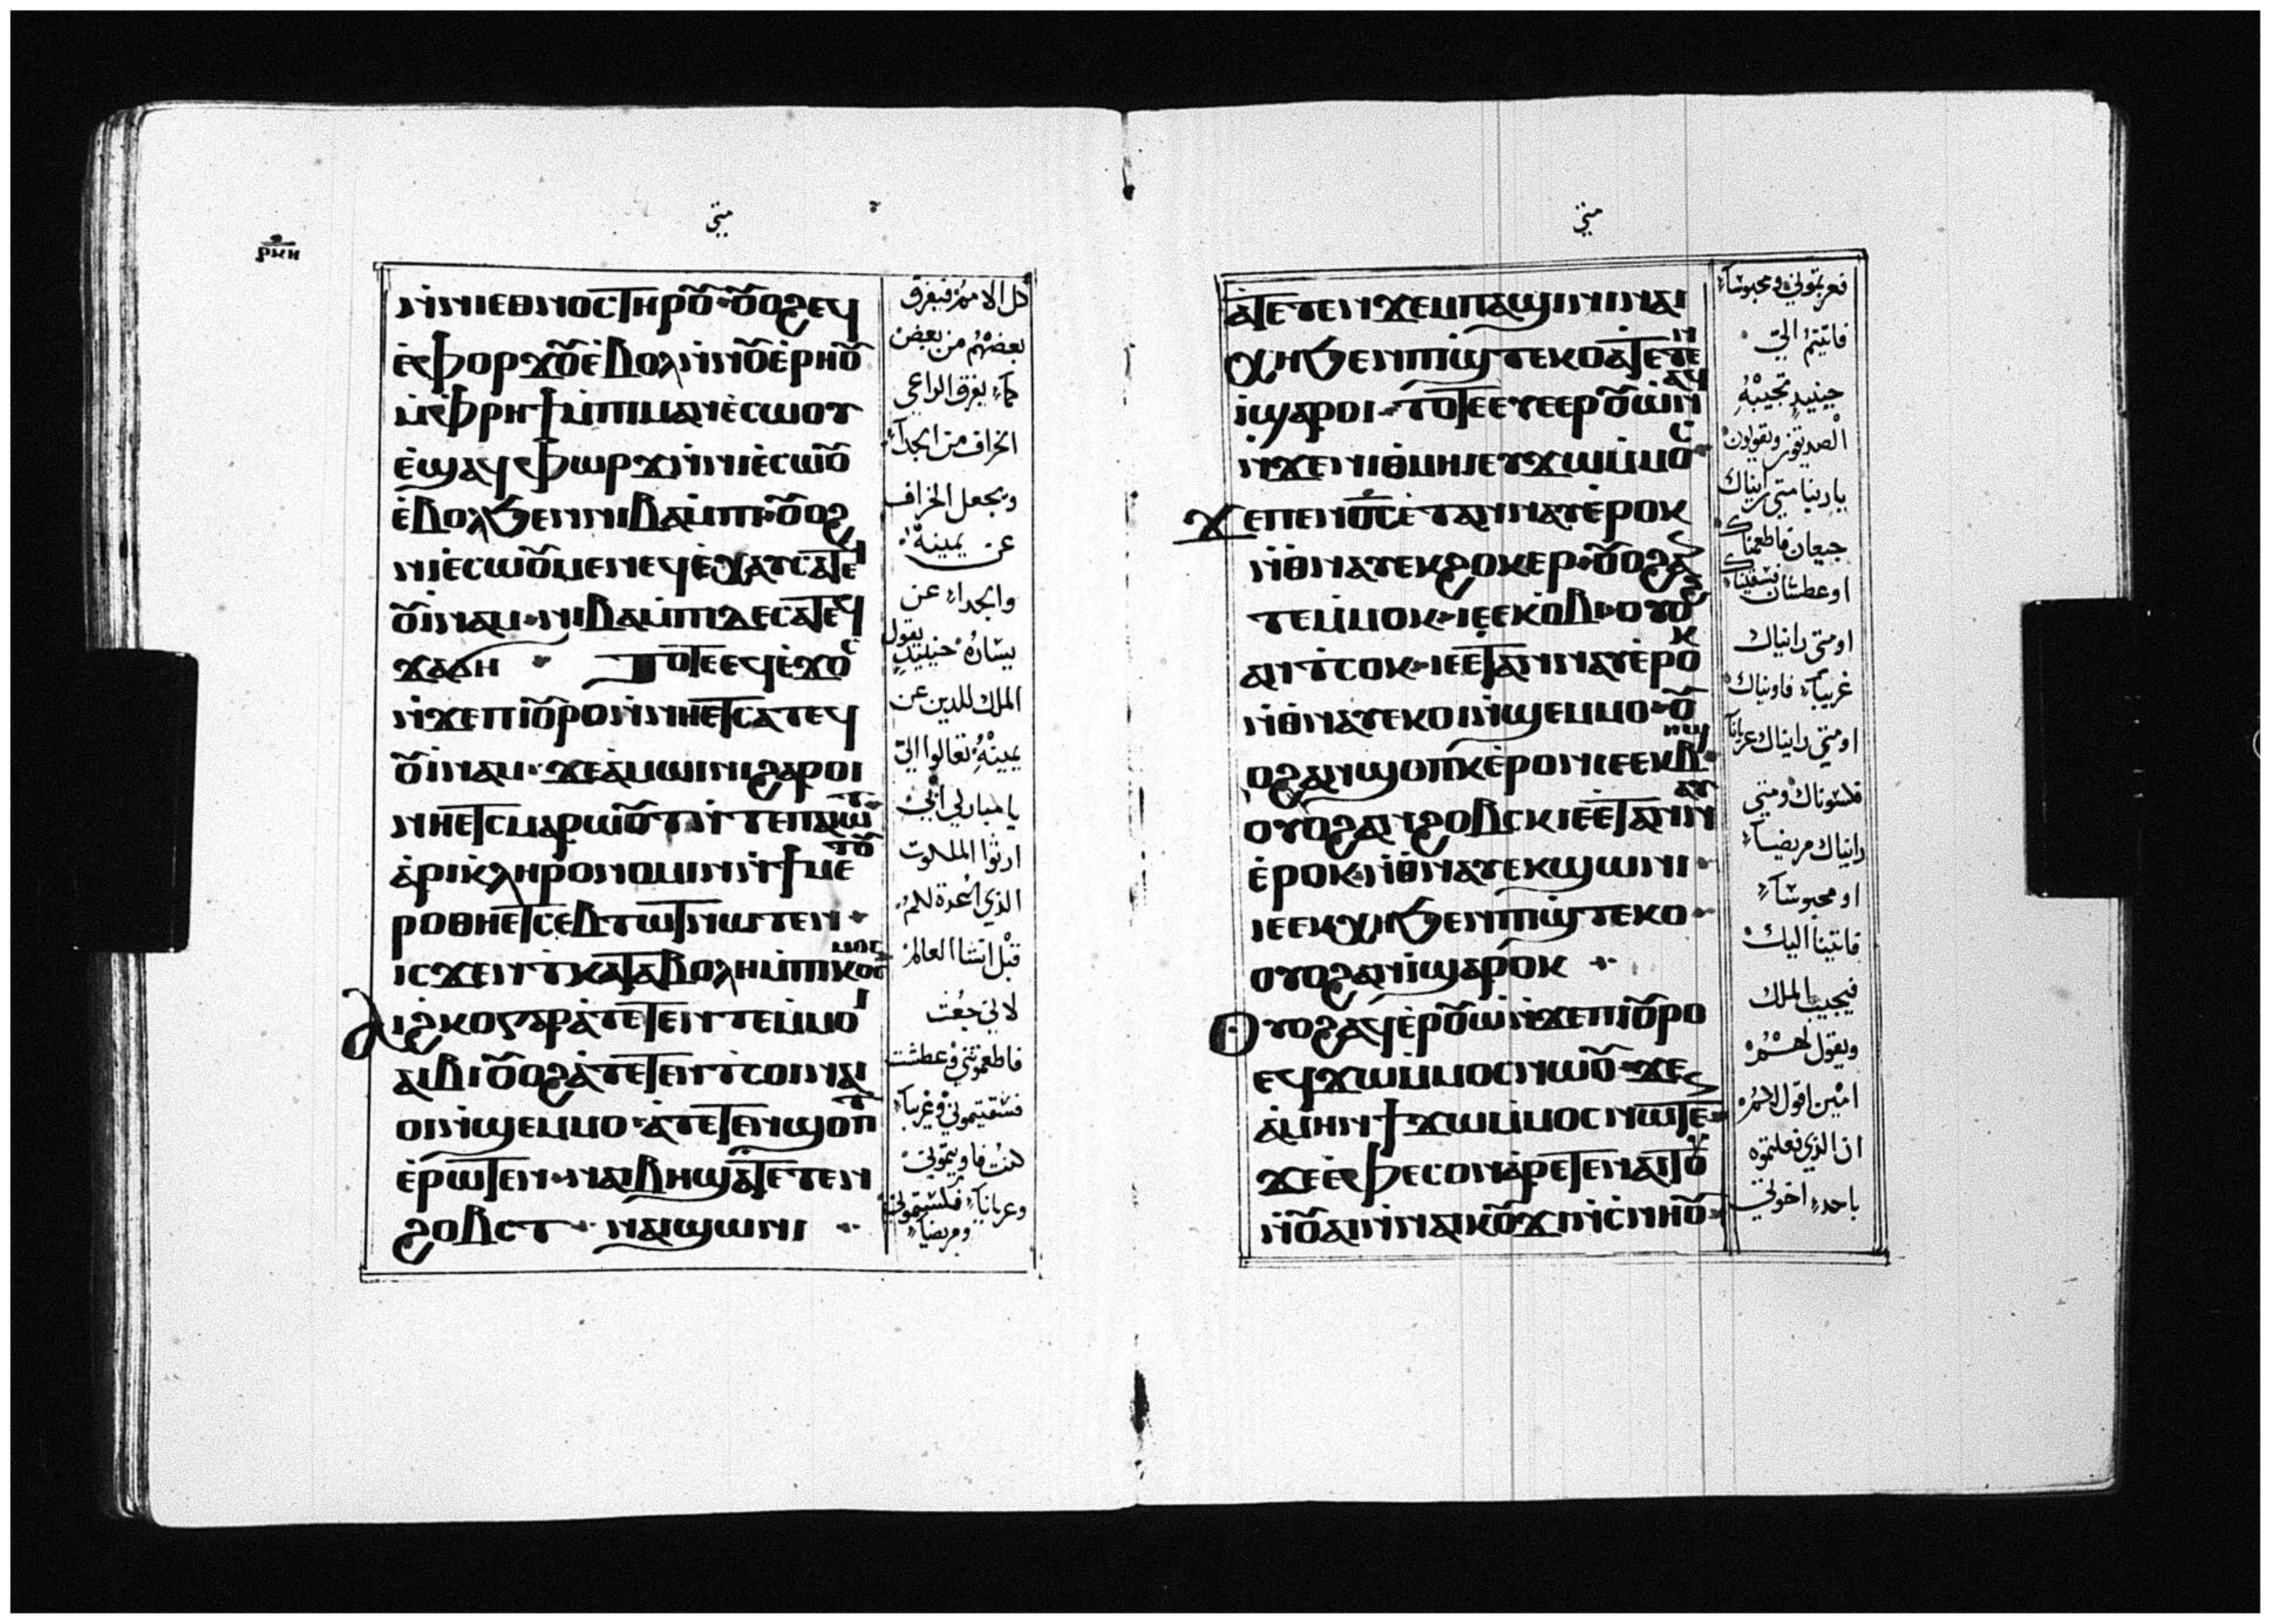 متى
ⲣⲕⲏ
ⲛ̀ⲛⲓⲉⲑⲛⲟⲥ ⲧⲏⲣⲟⲩ · ⲟⲩⲟϩ ⲉϥ
ⲉ̀ⲫⲟⲣϫⲟⲩ ⲉ̀ⲃⲟⲗ ⲛ̀ⲛⲟⲩⲉ̀ⲣⲏⲟⲩ
ⲙ̀ⲫⲣⲏϯ ⲙ̀ⲡⲓⲙⲁⲛⲉ̀ⲥⲱⲟⲩ
ⲉ̀ϣⲁϥⲫⲱⲣϫ ⲛ̀ⲛⲓⲉ̀ⲥⲱⲟⲩ
ⲉ̀ⲃⲟⲗ ϧⲉⲛ ⲛⲓⲃⲁⲙ̀ⲡⲓ · ⲟⲩⲟϩ
ⲛⲓⲉ̀ⲥⲱⲟⲩ ⲙⲉⲛ ⲉϥⲉ̀ⲭⲁⲩ ⲥⲁⲧⲉϥ
ⲟⲩⲓ̀ⲛⲁⲙ · ⲛⲓⲃⲁⲙ̀ⲡⲓ ⲇⲉ ⲥⲁⲧⲉϥ
ϫⲁϭⲏ · ⲧⲟⲧⲉ ⲉϥⲉ̀ϫⲟⲥ
ⲛ̀ϫⲉ ⲡⲓⲟⲩⲣⲟ ⲛ̀ⲛⲏⲉⲧⲥⲁⲧⲉϥ
ⲟⲩⲓ̀ⲛⲁⲙ · ϫⲉ ⲁ̀ⲙⲱⲓⲛⲓ ϩⲁⲣⲟⲓ
ⲛⲏⲉⲧⲥⲙⲁⲣⲱⲟⲩⲧ ⲛ̀ⲧⲉ ⲡⲁⲓⲱⲧ
ⲁ̀ⲣⲓⲕ̀ⲗⲏⲣⲟⲛⲟⲙⲓⲛ ⲛ̀ϯⲙⲉⲧⲟⲩ
ⲣⲟ ⲑⲏⲉⲧⲥⲉⲃⲧⲱⲧ ⲛⲱⲧⲉⲛ ·
ⲓⲥϫⲉⲛ ⲧ̀ⲕⲁⲧⲁⲃⲟⲗⲏ ⲙ̀ⲡⲓⲕⲟⲥⲙⲟⲥ
ⲁⲓϩ̀ⲕⲟ ⲅⲁⲣ ⲁ̀ⲧⲉⲧⲉⲛⲧⲉⲙ̀ⲙⲟⲓ
ⲁⲓⲃⲓ ⲟⲩⲟϩ ⲁ̀ⲧⲉⲧⲉⲛⲧ̀ⲥⲟⲓ ⲛⲁⲓ
ⲟⲓ ⲛ̀ϣⲉⲙⲙⲟ · ⲁ̀ⲧⲉⲧⲉⲛϣⲟⲡⲧ
ⲉ̀ⲣⲱⲧⲉⲛ · ⲛⲁⲓⲃⲏϣ ⲁⲧⲉⲧⲉⲛ
ϩⲟⲃⲥⲧ · ⲛⲁⲓϣⲱⲛⲓ ·
كل الامم فيفرق
بعضهم من بعض
كما يفرق الراعي
الخراف من الجدآء
ويجعل الخراف
عن يمينه
والجداء عن
يساره حينيد يقول
الملك للدين عن
يمينه تعالوا اليّ
يا مباركي ابي
ارثوا الملكوت
الذي اعدة لكم
قبل انشا العالم
لاني جعت
فاطعمتموني وعطشت
فسقيتموني وغريباً
كنت فاويتموني
وعرياناً فكسيتموني
ومريضاً
متى
ⲁ̀ⲧⲉⲧⲉⲛϫⲉⲙⲡⲁϣⲓⲛⲓ ⲛⲁⲓ
ⲭⲏ ϧⲉⲛ ⲡⲓϣ̀ⲧⲉⲕⲟ ⲁⲧⲉⲧⲉⲛ
ⲓ̀ ϣⲁⲣⲟⲓ · ⲧⲟⲧⲉ ⲉⲩⲉⲉⲣⲟⲩⲱ̀ ⲛⲁϥ
ⲛ̀ϫⲉ ⲛⲓⲑ̀ⲙⲏⲓ ⲉⲩϫⲱⲙ̀ⲙⲟⲥ ·
ϫⲉ ⲡⲉⲛⲟ̅ⲥ̅ ⲉ̀ⲧⲁⲛⲛⲁⲩ ⲉ̀ⲣⲟⲕ
ⲛ̀ⲑⲛⲁⲩ ⲉⲕϩⲟⲕⲉⲣ · ⲟⲩⲟϩ ⲁⲛ
ⲧⲉⲙ̀ⲙⲟⲕ · ⲓⲉ ⲉⲕⲟ̀ⲃⲓ · ⲟⲩⲟϩ
ⲁⲛⲧ̀ⲥⲟⲕ · ⲓⲉ ⲉ̀ⲧⲁⲛⲛⲁⲩ ⲉ̀ⲣⲟⲕ
ⲛ̀ⲑⲛⲁⲩ ⲉⲕⲟⲓ ⲛ̀ϣⲉⲙⲙⲟ · ⲟⲩ
ⲟϩ ⲁⲛϣⲟⲡⲕ ⲉ̀ⲣⲟⲛ ⲓⲉ ⲉⲕⲃⲏϣ
ⲟⲩⲟϩ ⲁⲛϩⲟⲃⲥⲕ ⲓⲉ ⲉ̀ⲧⲁⲛⲛⲁⲩ
ⲉ̀ⲣⲟⲕ ⲛ̀ⲑⲛⲁⲩ ⲉⲕϣⲱⲛⲓ ·
ⲓⲉ ⲉⲕⲭⲏ ϧⲉⲛ ⲡⲓϣ̀ⲧⲉⲕⲟ ·
ⲟⲩⲟϩ ⲁⲛⲓ̀ ϣⲁⲣⲟⲕ ·
ⲟⲩⲟϩ ⲁϥⲉ̀ⲣⲟⲩⲱ̀ ⲛ̀ϫⲉ ⲡⲓⲟⲩⲣⲟ
ⲉϥϫⲱⲙ̀ⲙⲟⲥ ⲛⲱⲟⲩ · ϫⲉ
ⲁ̀ⲙⲏⲛ ϯϫⲱⲙ̀ⲙⲟⲥ ⲛⲱⲧⲉⲛ
ϫⲉ ⲉ̀ⲫⲉⲥⲟⲛ ⲁ̀ⲣⲉⲧⲉⲛⲁⲓⲧⲟⲩ
ⲛ̀ⲟⲩⲁⲓ ⲛ̀ⲛⲁⲓⲕⲟⲩϫⲓ ⲛ̀ⲥ̀ⲛⲏⲟⲩ ·
فعريتموني ومحبوساً
فاتيتم اليّ
حينيد تجيبه
الصديقون ويقولون
ياربنا متى رايناك
جيعان فاطعمناك
او عطشان فسقيناك
او متى رايناك
غريباً فاويناك
او متى رايناك عرياناً
فكسوناك ومتى
رايناك مريضاً
او محبوساً
فاتينا اليك
فيجيب الملك
ويقول لهم
امين اقول لكم
ان الذي فعلتموه
باحد اخوتي